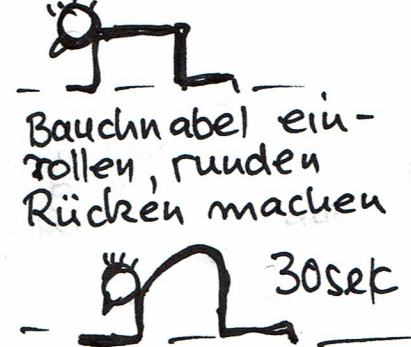 Bauchnabel ein-
rollen, runden
Rücken machen
30sek